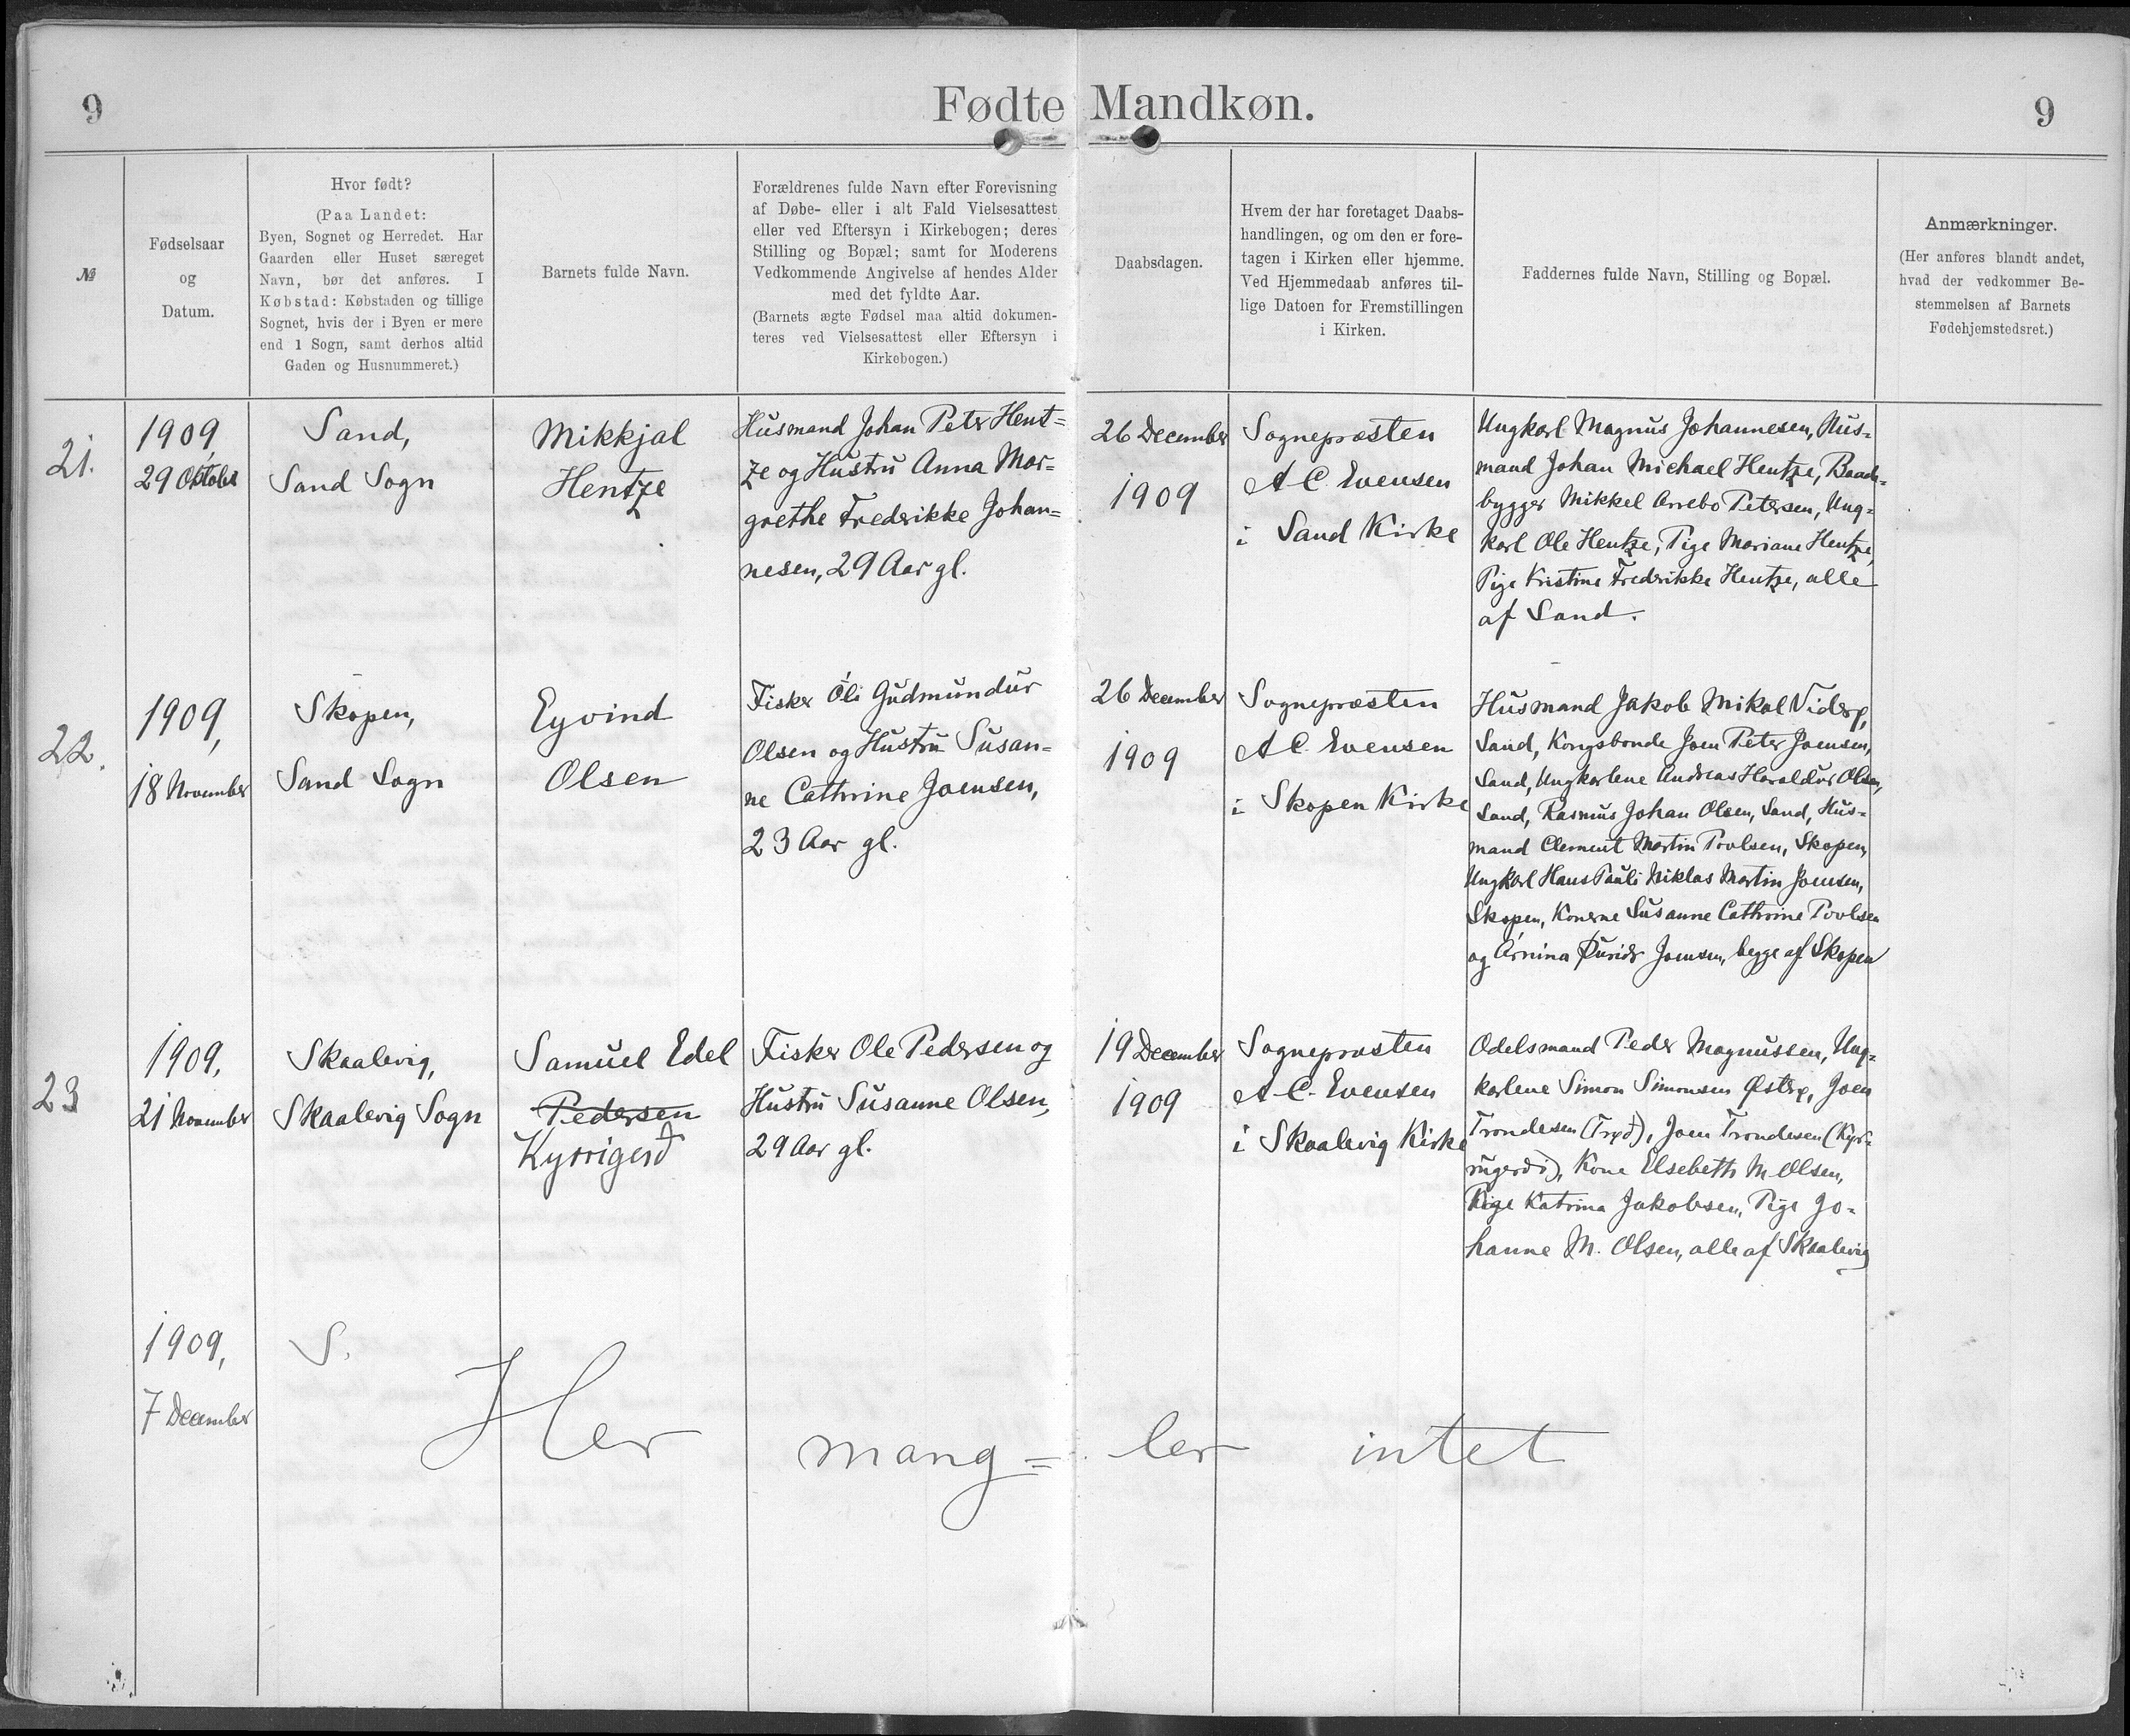 9
Fødte Mandkøn.
9
№
Fødselsaar
og
Datum.
Hvor født?
(Paa Landet:
Byen, Sognet og Herredet. Har
Gaarden eller Huset særeget
Navn, bør det anføres. I
Købstad: Købstaden og tillige
Sognet, hvis der i Byen er mere
end 1 Sogn, samt derhos altid
Gaden og Husnummeret.)
Barnets fulde Navn.
Forældrenes fulde Navn efter Forevisning
af Døbe- eller i alt Fald Vielsesattest
eller ved Eftersyn i Kirkebogen; deres
Stilling og Bopæl; samt for Moderens
Vedkommende Angivelse af hendes Alder
med det fyldte Aar.
(Barnets ægte Fødsel maa altid dokumen-
teres ved Vielsesattest eller Eftersyn i
Kirkebogen.)
Daabsdagen.
Hvem der har foretaget Daabs-
handlingen, og om den er fore-
tagen i Kirken eller hjemme.
Ved Hjemmedaab anføres til-
lige Datoen for Fremstillingen
i Kirken.
Faddernes fulde Navn, Stilling og Bopæl.
Anmærkninger.
(Her anføres blandt andet,
hvad der vedkommer Be-
stemmelsen af Barnets
Fødehjemstedsret.)
21.
1909,
29 Oktober
Sand,
Sand Sogn
Mikkjal
Hentze
Husmand Johan Peter Hent=
ze og Hustru Anna Mar=
grethe Frederikke Johan=
nesen, 29 Aar gl.
26 December
1909
Sognepræsten
A C. Evensen
i Sand Kirke
Ungkarl Magnus Johannesen, Hus=
mand Johan Michael Hentze, Baad=
bygger Mikkel Arrebo Petersen, Ung=
karl Ole Hentze, Pige Mariane Hentze,
Pige Kristine Frederikke Hentze, alle
af Sand.
22.
1909,
18 November
Skopen,
Sand Sogn
Eyvind
Olsen
Fisker Óli Gudmundur
Olsen og Hustru Susan=
ne Cathrine Joensen,
23 Aar gl.
26 December
1909
Sognepræsten
A C. Evensen
i Skopen Kirke
Husmand Jakob Mikal Viderø,
Sand, Kongsbonde Joen Peter Joensen,
Sand, Ungkarlene Andreas Haraldur Olsen,
Sand, Rasmus Johan Olsen, Sand, Hus=
mand Clement Martin Poulsen, Skopen,
Ungkarl Hans Pauli Niklas Martin Joensen,
Skopen, Konerne Susanne Cathrine Poulsen
og Arnina Þuriðr Joensen, begge af Skopen
23
1909,
21 November
Skaalevig,
Skaalevig Sogn
Samuel Edel
Pedersen
Kyrrigerð
Fisker Ole Pedersen og
Hustru Susanne Olsen,
29 Aar gl.
19 December
1909
Sognepræsten
A. C. Evensen
i Skaalevig Kirke
Odelsmand Peder Magnussen, Ung=
karlene Simon Simonsen Østerø, Joen
Trondesen (Trøð), Joen Trondesen (Kyr-
rugerði), Kone Elsebeth M. Olsen,
Pige Katrina Jakobsen, Pige Jo=
hanne M. Olsen, alle af Skaalevig
1909,
7 December
S.
Her mang= ler intet